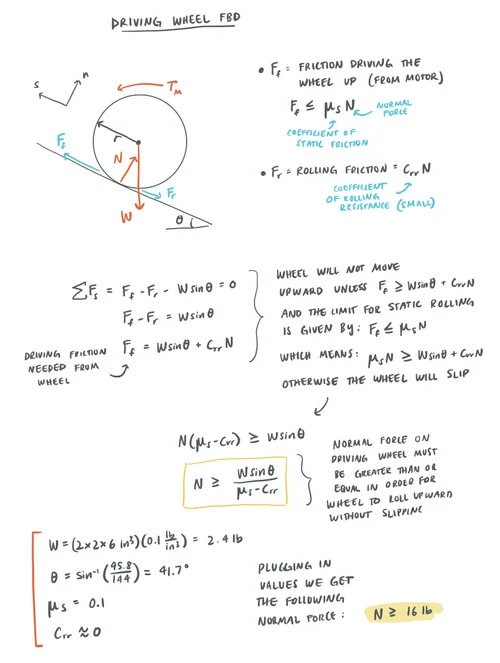 DRIVING WHEEL FBD
n
s
T_M
F_f
r
N
F_r
W
θ
• F_f = FRICTION DRIVING THE
WHEEL UP (FROM MOTOR)
F_f ≤ μ_s N
NORMAL
FORCE
COEFFICIENT OF
STATIC FRICTION
• F_r = ROLLING FRICTION = C_rr N
COEFFICIENT
OF ROLLING
RESISTANCE (SMALL)
ΣF_s = F_f - F_r - W sin θ = 0
F_f - F_r = W sin θ
F_f = W sin θ + C_rr N
DRIVING FRICTION
NEEDED FROM
WHEEL
WHEEL WILL NOT MOVE
UPWARD UNLESS F_f ≥ W sin θ + C_rr N
AND THE LIMIT FOR STATIC ROLLING
IS GIVEN BY: F_f ≤ μ_s N
WHICH MEANS: μ_s N ≥ W sin θ + C_rr N
OTHERWISE THE WHEEL WILL SLIP
N(μ_s - C_rr) ≥ W sin θ
N ≥ W sin θ / μ_s - C_rr
NORMAL FORCE ON
DRIVING WHEEL MUST
BE GREATER THAN OR
EQUAL IN ORDER FOR
WHEEL TO ROLL UPWARD
WITHOUT SLIPPING
W = (2 x 2 x 6 in³)(0.1 lb/in³) = 2.4 lb
θ = sin⁻¹(95.8/144) = 41.7°
μ_s = 0.1
C_rr ≈ 0
PLUGGING IN
VALUES WE GET
THE FOLLOWING
NORMAL FORCE: N ≥ 16 lb